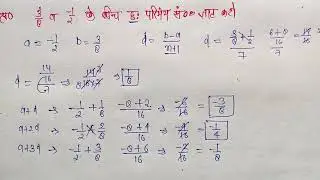 प्र० 3/8 व -1/2 के बीच छः परिमेय संख्या ज्ञात करो
a = -1/2 b = 3/8 d = b-a/n+1 d = 3/8 + 1/2 / 7 6+8/16 / 7 = 14/16
d = 14/16 / 7 = 1/8
a+d = -1/2 + 1/8 = -8+2/16 = -6/16 = -3/8
a+2d = -1/2 + 2/8 = -8+4/16 = -4/16 = -1/4
a+3d = -1/2 + 3/8 = -8+6/16 = -2/16 = -1/8